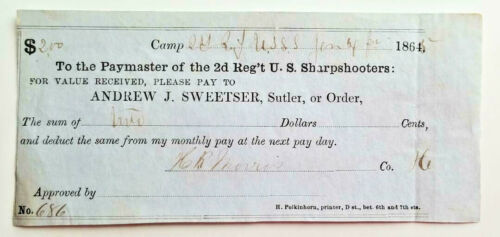 $2.00 Camp 2d Reg U.S.S.S. 1865
To the Paymaster of the 2d Reg't U. S. Sharpshooters:
FOR VALUE RECEIVED, PLEASE PAY TO
ANDREW J. SWEETSER, Sutler, or Order,
The sum of two Dollars Cents,
and deduct the same from my monthly pay at the next pay day.
H B Morris Co.
Approved by
No. 686 H. Polkinhorn, printer, D st., bet. 6th and 7th sts.